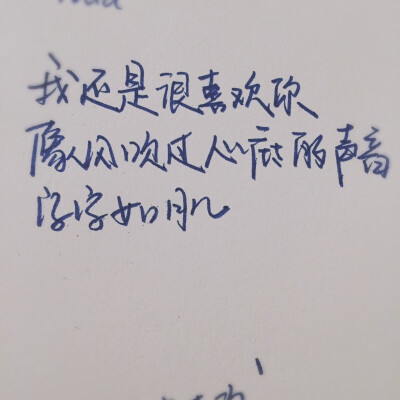 我还是很喜欢你
像风吹过心底的声音
字字如肌